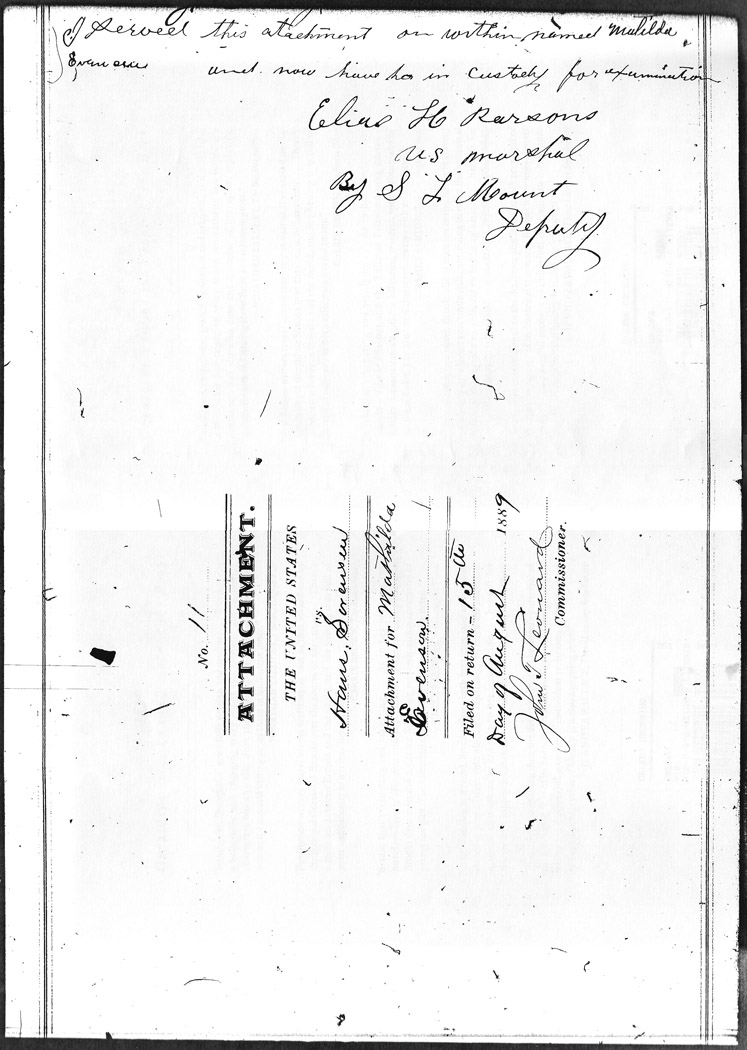 I served this atachment on within named Matilda
Evensen and now have her in custody for examination
Elias H Parsons
US marshal
By S L Mount
Deputy
No. 11
ATTACHMENT.
THE UNITED STATES
vs.
Hans Sorensen
Attachment for Mathilda
Evenson.
Filed on return - 15th
Day of August 1889
John T Leonard
Commissioner.